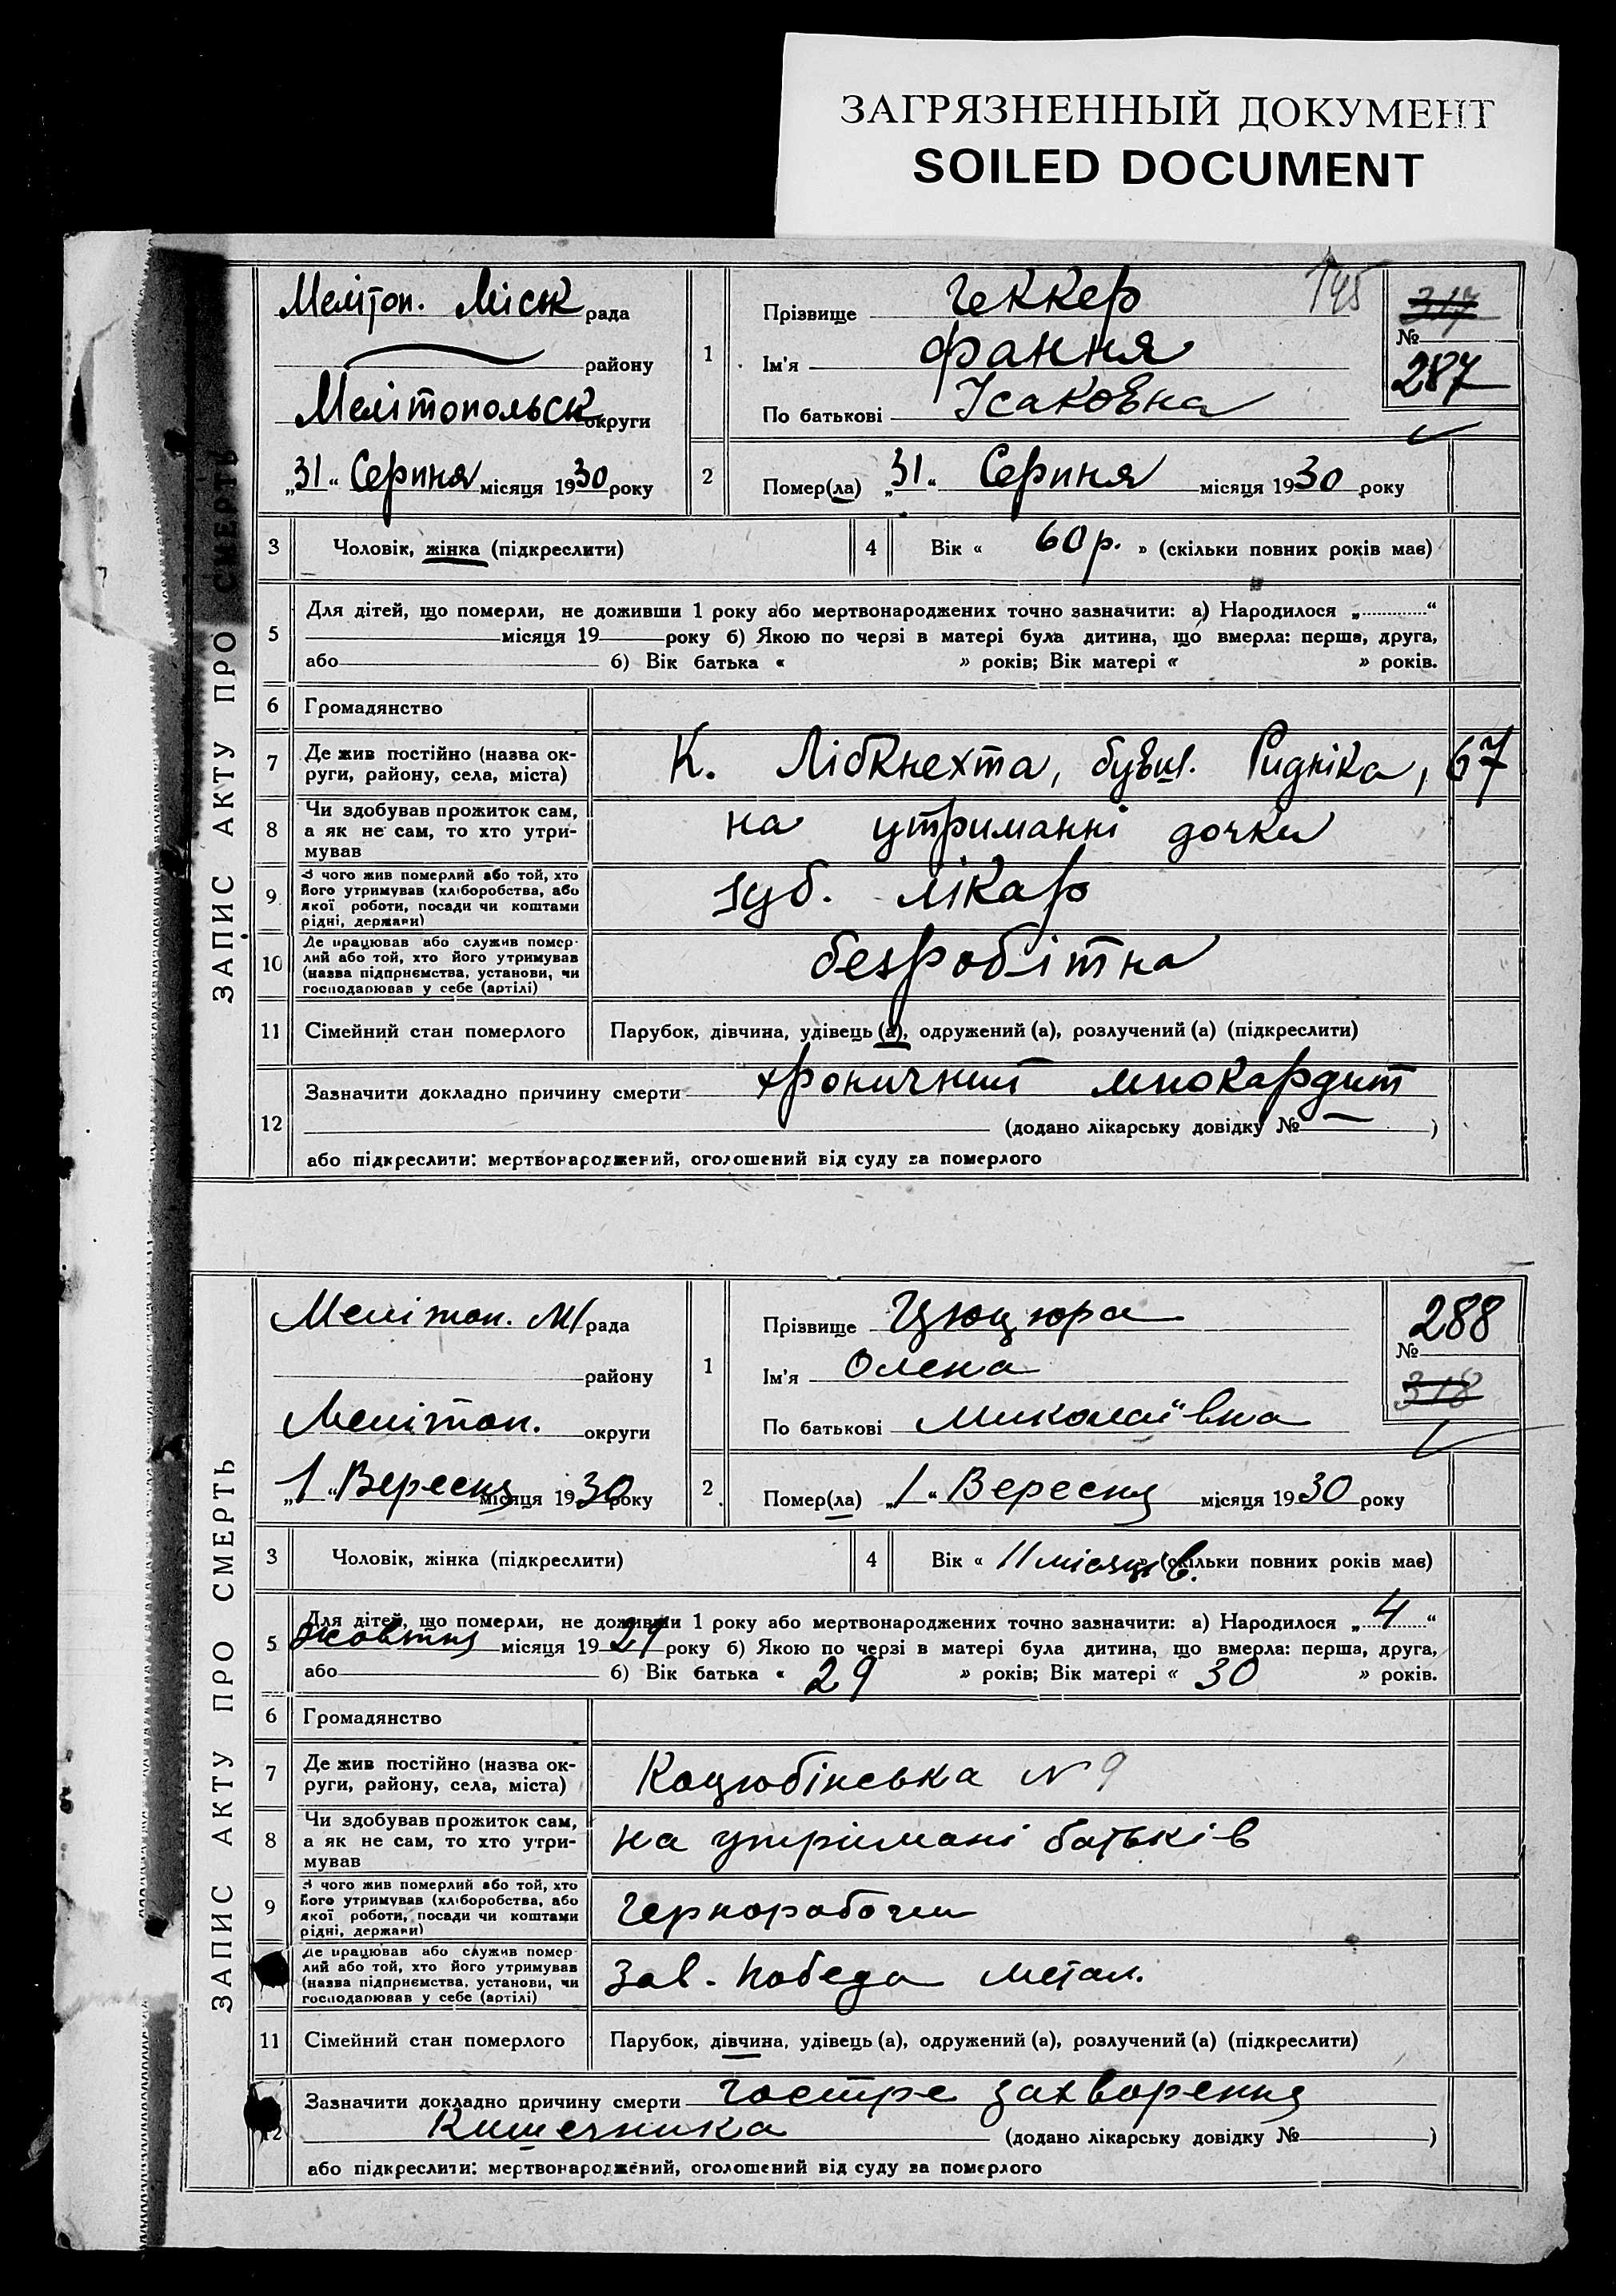 ЗАГРЯЗНЕННЫЙ ДОКУМЕНТ
SOILED DOCUMENT
ЗАПИС АКТУ ПРО СМЕРТЬ
Мелітоп. Міськ рада
району
Мелітопольськ округи
„31“ Серпня місяця 1930 року
1
Прізвище Геккер
195
Ім'я Фання
По батькові Ісаковна
317
№
287
2
Помер(ла) „31“ Серпня місяця 1930 року
3 Чоловік, жінка (підкреслити)
4 Вік « 60 р. » (скільки повних років має)
5
Для дітей, що померли, не доживши 1 року або мертвонароджених точно зазначити: а) Народилося „............“
місяця 19 року б) Якою по черзі в матері була дитина, що вмерла: перша, друга,
або б) Вік батька « » років; Вік матері « » років.
6 Громадянство
7 Де жив постійно (назва ок-
руги, району, села, міста)
К. Лібкнехта, бувш. Рудніка, 67
8 Чи здобував прожиток сам,
а як не сам, то хто утри-
мував
на утриманні дочки
9 З чого жив померлий або той, хто
його утримував (хліборобства, або
якої роботи, посади чи коштами
рідні, держави)
зуб. лікар
10 Де працював або служив помер-
лий або той, хто його утримував
(назва підприємства, установи, чи
господарював у себе (артілі)
безробітна
11 Сімейний стан померлого Парубок, дівчина, удівець (а), одружений (а), розлучений (а) (підкреслити)
12
Зазначити докладно причину смерти хроничний миокардит
(додано лікарську довідку № — )
або підкреслити: мертвонароджений, оголошений від суду за померлого
ЗАПИС АКТУ ПРО СМЕРТЬ
Меліноп. М/рада
району
Меліноп. округи
„1“ Вересня місяця 1930 року
1
Прізвище Цюцюра
Ім'я Олена
По батькові Миколаївна
288
№
318
2
Помер(ла) „1“ Вересня місяця 1930 року
3 Чоловік, жінка (підкреслити)
4 Вік « 11 місяців. » (скільки повних років має)
5
Для дітей, що померли, не доживши 1 року або мертвонароджених точно зазначити: а) Народилося „4“
жовтня місяця 1929 року б) Якою по черзі в матері була дитина, що вмерла: перша, друга,
або б) Вік батька « 29 » років; Вік матері « 30 » років.
6 Громадянство
7 Де жив постійно (назва ок-
руги, району, села, міста)
Коцюбінська № 9
8 Чи здобував прожиток сам,
а як не сам, то хто утри-
мував
на утрімані батьків
9 З чого жив померлий або той, хто
його утримував (хліборобства, або
якої роботи, посади чи коштами
рідні, держави)
Чернорабочи
Де працював або служив помер-
лий або той, хто його утримував
(назва підприємства, установи, чи
господарював у себе (артілі)
Зав. Победа метал.
11 Сімейний стан померлого Парубок, дівчина, удівець (а), одружений (а), розлучений (а) (підкреслити)
12
Зазначити докладно причину смерти Гостре захворення
Кишечника (додано лікарську довідку № )
або підкреслити: мертвонароджений, оголошений від суду за померлого